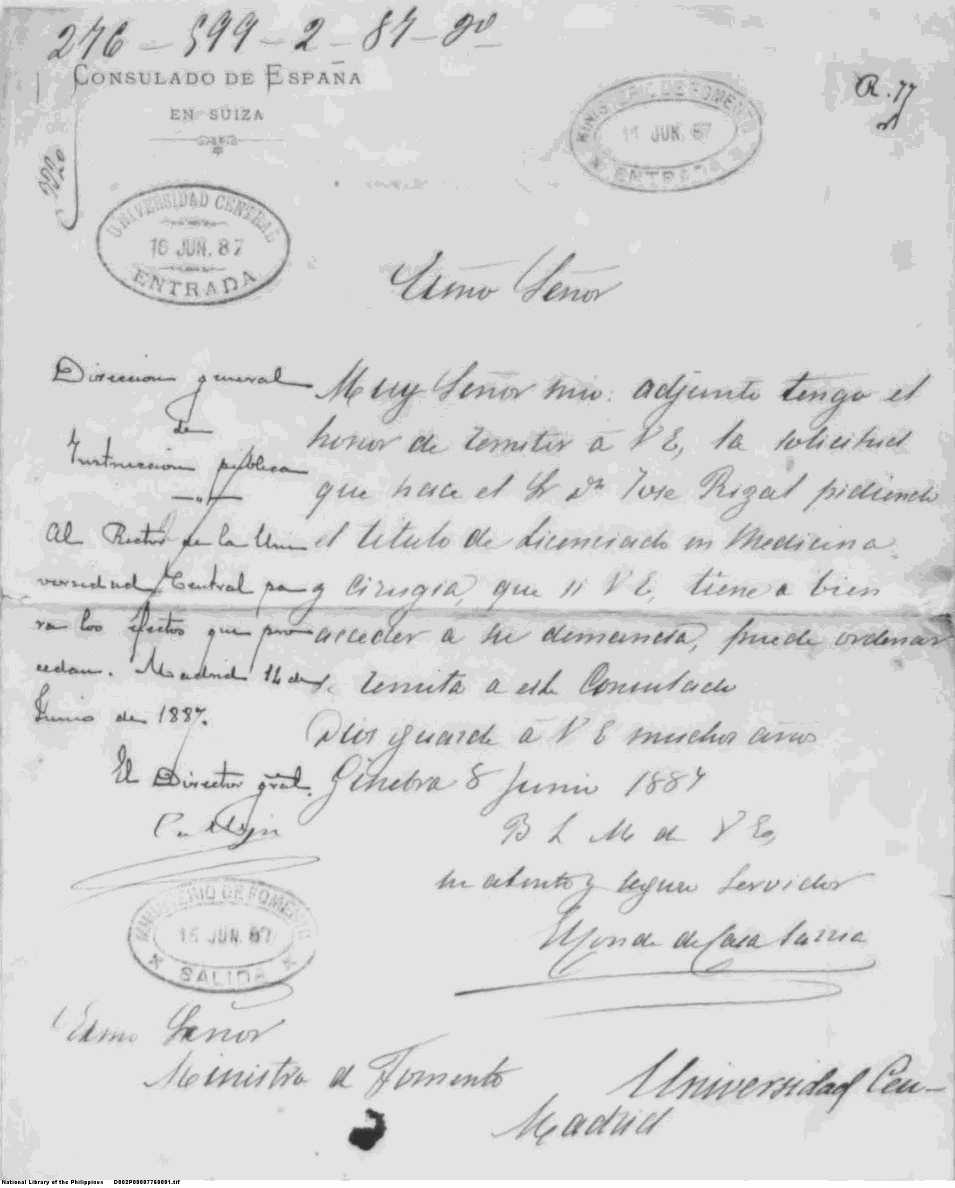 276-599-2-87-20
CONSULADO DE ESPAÑA
EN SUIZA
R. 77
MINISTERIO DE FOMENTO
11 JUN. 87
ENTRADA
UNIVERSIDAD CENTRAL
16 JUN. 87
ENTRADA
Exmo Señor
Muy Señor mio: adjunto tengo el
honor de remitir á V E, la solicitud
que hace el Sr Dn Jose Rizal pidiendo
el titulo de Licenciado en Medicina
y Cirugia, que si V E, tiene a bien
acceder a su demanda, puede ordenar
se remita a este Consulado
Dios guarde á V E muchos años
Ginebra 8 Junio 1887
B L M de V E,
su atento y seguro Servidor
El Conde de Casa Sarria
Direccion general
de
Instruccion publica
Al Rector de la Uni
versidad Central pa
ra los efectos que pro
cedan. Madrid 14 de
Junio de 1887.
El Director gral.
MINISTERIO DE FOMENTO
15 JUN. 87
SALIDA
Exmo Señor
Ministro de Fomento
Madrid
Universidad Cen-
National Library of the Philippines D002P00007760001.tif